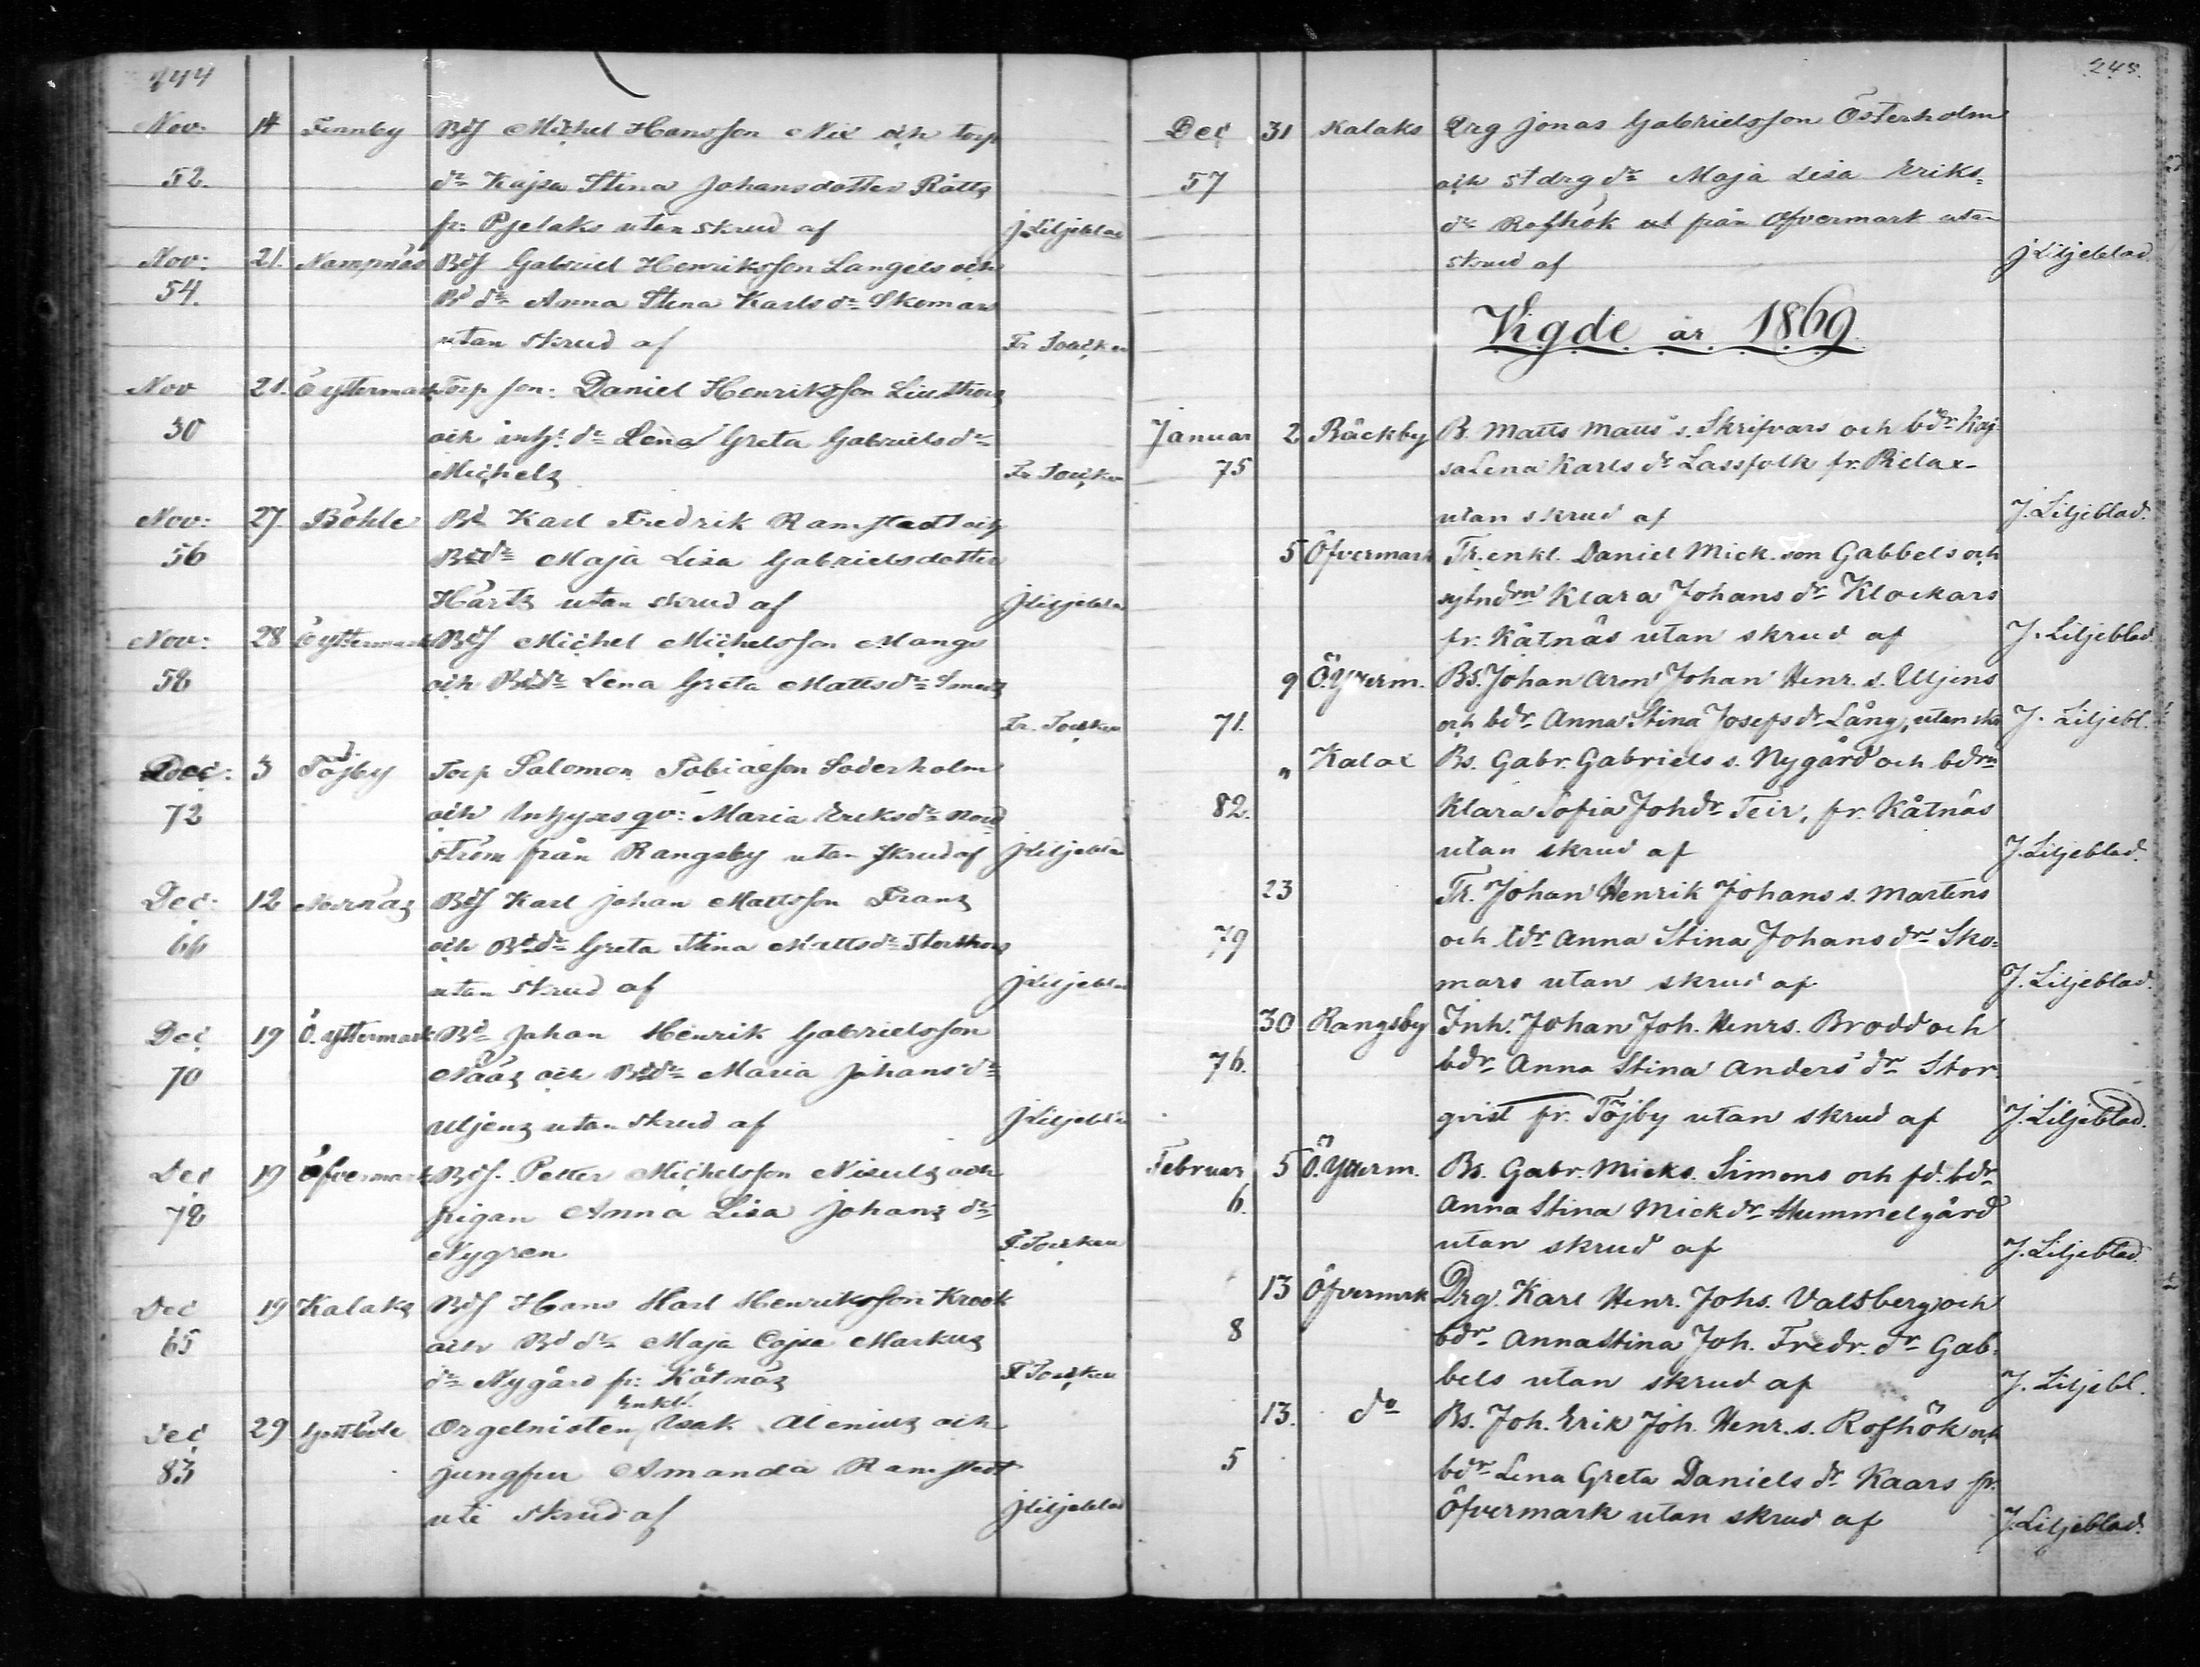 244
Nov: 14 Finnby Bdſ Michel Hansſon Nix och torp
52. dr Kajsa Stina Johansdotter Rättz
fr: Pjelaks utan skrud af J Liljeblad
Nov: 21. Nampnäs Bdſ Gabriel Henriksſon Langels och
54. Bd dr Anna Stina Karlsdr Skomars
utan skrud af Fr
Nov 21. Ö yttermark Torp son: Daniel Henriksſon
30 och inh: dr Lena Greta Gabrielsdr
Michelz Fr
Nov: 27 Böhle Bd Karl Fredrik Ramstedt och
56 Bddr Maja Lisa Gabrielsdotter
Härtz utan skrud af J Liljeblad
Nov: 28 Ö yttermark Bdſ Michel Michelsſon Mangs
58 och Bddr Lena Greta Mattsdr Smeds
Fr.
Dec: 3 Töjby Torp Salomon Tobiasſon Söderholm
72 och Inhyses qv: Maria Eriksdr Nord
ström från Rangsby utan skrud af J Liljeblad
Dec: 12 Norrnäs Bdſ Karl Johan Mattsſon Franz
66 och Bddr Greta Stina Mattsdr Storthors
utan skrud af J Liljeblad
Dec 19 Ö. yttermark Bd Johan Henrik Gabrielsſon
70 Nääs och Bddr Maria Johansdr
Uljenz utan skrud af J Liljeblad
Dec 19 Öfvermark Bdſ. Petter Michelsſon och
78 pigan Anna Lisa Johans dr
Nygren F.
Dec 19 Kalaks Bdſ Hans Karl Henriksſon Krook
65 och Bd dr Maja Cajsa Markuz
dr Nygård fr: Kåtnäs F
Enkl.
Dec 29 Gottböle Orgelnisten, Isak Alenius och
83 jungfru Amanda Ramstedt
uti skrud af J Liljeblad
245.
Dec 31 Kalaks Drg Jonas Gabrielsſon Österholm
57 och st drg dr Maja Lisa Eriks=
dr Rofhök ut från Öfvermark utan
skrud af J Liljeblad.
Vigde år 1869.
Januar 2 Bäckby B. Matts Matts s. Skrifvars och bdr Kaj-
75 sa Lena Karls dr Lassfolk fr. Pielax
utan skrud af J. Liljeblad.
5 Öfvermark Tr. enkl. Daniel Mick. son Gabbels och
sytndrn Klara Johans dr Klockars
fr. Kåtnäs utan skrud af J. Liljeblad
9 Ö. Ytterm. Bs. Johan Arm Johan Henr. s. Uljens
71. och bdr Anna Stina Josefs dr Lång, utan skr J. Liljebl.
" Kalax Bs. Gabr. Gabriels s. Nygård och bdrn
82. Klara Sofia Johdr Teir, fr. Kåtnäs
utan skrud af J. Liljeblad.
23 Tr. Johan Henrik Johans s. Martens
79 och tdr Anna Stina Johans dr Sko=
mars utan skrud af J. Liljeblad.
30 Rangsby Inh. Johan Joh. Henrs. Brodd och
76. bdr Anna Stina Anders dr Stor-
qvist fr. Töjby utan skrud af J. Liljeblad.
Februar 5 Ö. Ytterm. Bs. Gabr. Micks. Simons och fd. bdr
6. Anna Stina Mick dr Hummelgård
utan skrud af J. Liljeblad.
13 Öfvermrk Drg. Karl Henr. Johs. Valsberg och
8 bdr Anna Stina Joh. Fredr. dr Gab-
bels utan skrud af J. Liljebl.
13. do Bs. Joh. Erik Joh. Henr. s. Rofhök och
5 bdr Lena Greta Daniels dr Kaars fr.
Öfvermark utan skrud af J. Liljeblad.